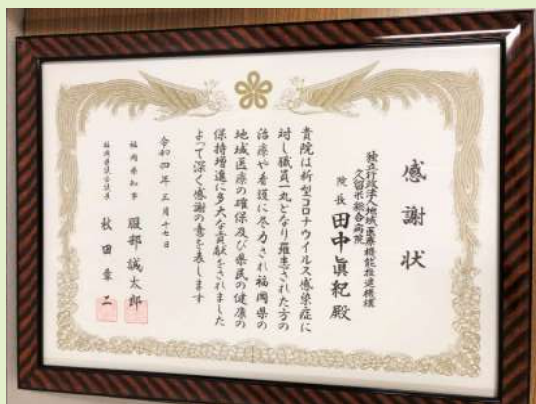 感謝状
独立行政法人地域医療機能推進機構
久留米総合病院
院長 田中眞紀殿
貴院は新型コロナウイルス感染症に
対し職員一丸となり罹患された方の
治療や看護に尽力され福岡県の
地域医療の確保及び県民の健康の
保持増進に多大な貢献をされました
よって深く感謝の意を表します
令和四年三月十七日
福岡県知事 服部誠太郎
福岡県議会議長 秋田章二